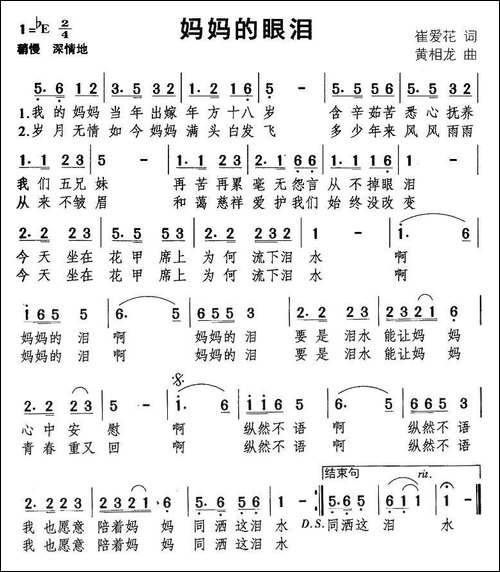 妈妈的眼泪
1=♭E 2/4
稍慢 深情地
崔爱花 词
黄相龙 曲
5. 6 1 2 | 3. 5 3 2 | 1. 2 1 2 | 5 - | 5. 5 1 2 | 5. 5 6 6 |
1.我的妈妈 当年出嫁 年方十八 岁 含辛茹苦 悉心抚养
2.岁月无情 如今妈妈 满头白发 飞 多少年来 风风雨雨
1. 1 2 3 | 5 - | 1. 1 2 3 | 2. 1 6 6 | 5. 5 2 3 | 1 - |
我们五兄妹 再苦再累 毫无怨言 从不掉眼泪
从来不皱眉 和蔼慈祥 爱护我们 始终没改变
2. 2 2 3 | 5. 5 5 3 | 2. 2 2 3 | 2 - | 1. 6 |
今天坐在 花甲席上 为何流下泪 水 啊
今天坐在 花甲席上 为何流下泪 水 啊
1 6 5 5 | 6. 5 | 3 5 5 5 | 2. 2 2 3 | 2 3 2 1 |
妈妈的泪 啊 妈妈的泪 要是泪水 能让妈妈
妈妈的泪 啊 妈妈的泪 要是泪水 能让妈
2. 2 2 3 | 5 - | 1. 6 | 1 1 6 5 | 6. 5 | 6 6 5 3 |
心中安慰 啊 纵然不语 啊 纵然不语
青春重又回 啊 纵然不语 啊 纵然不语
结束句 rit.
2. 2 2 3 | 2 2 3 2 1 | 5. 6 5 5 | 1 - :| 5. 6 5 | 6 1 1 | 1 - |
我也愿意 陪着妈妈 同洒这泪 水 D.S. 同洒这 泪 水
我也愿意 陪着妈妈 同洒这泪 水